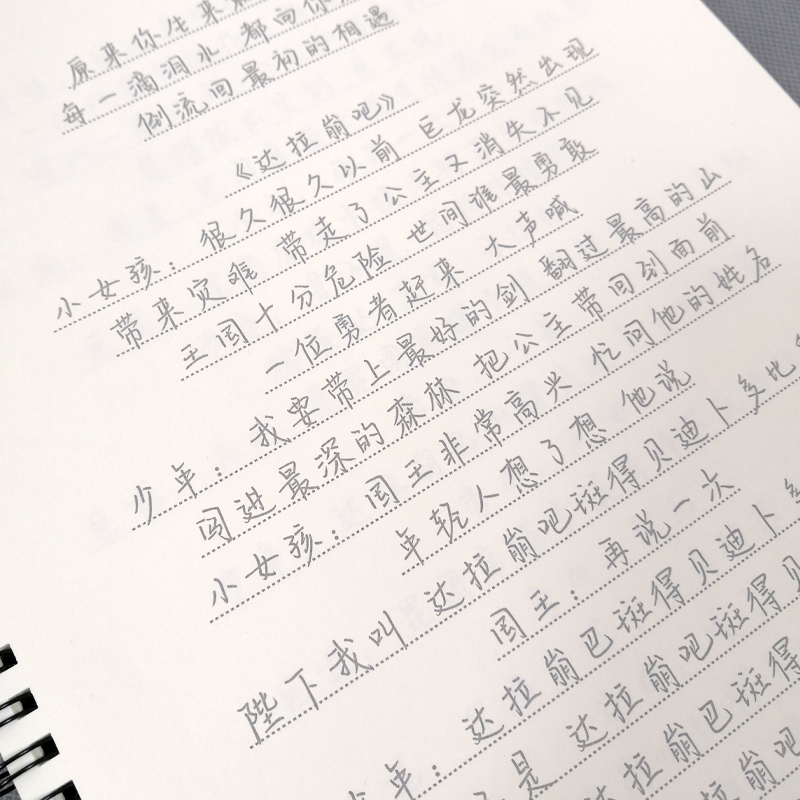 原来你生来
每一滴泪水 都向你
倒流回最初的相遇
《达拉崩吧》
小女孩：很久很久以前 巨龙突然出现
带来灾难 带走了公主又消失不见
王国十分危险 世间谁最勇敢
一位勇者赶来 大声喊
少年：我要带上最好的剑 翻过最高的山
闯进最深的森林 把公主带回到面前
小女孩：国王非常高兴 忙问他的姓名
年轻人想了想 他说
陛下我叫 达拉崩吧斑得贝迪卜多比
国王：再说一次
年：达拉崩巴斑得贝迪卜多
是 达拉崩吧斑得贝
达拉崩巴斑得
拉崩吧